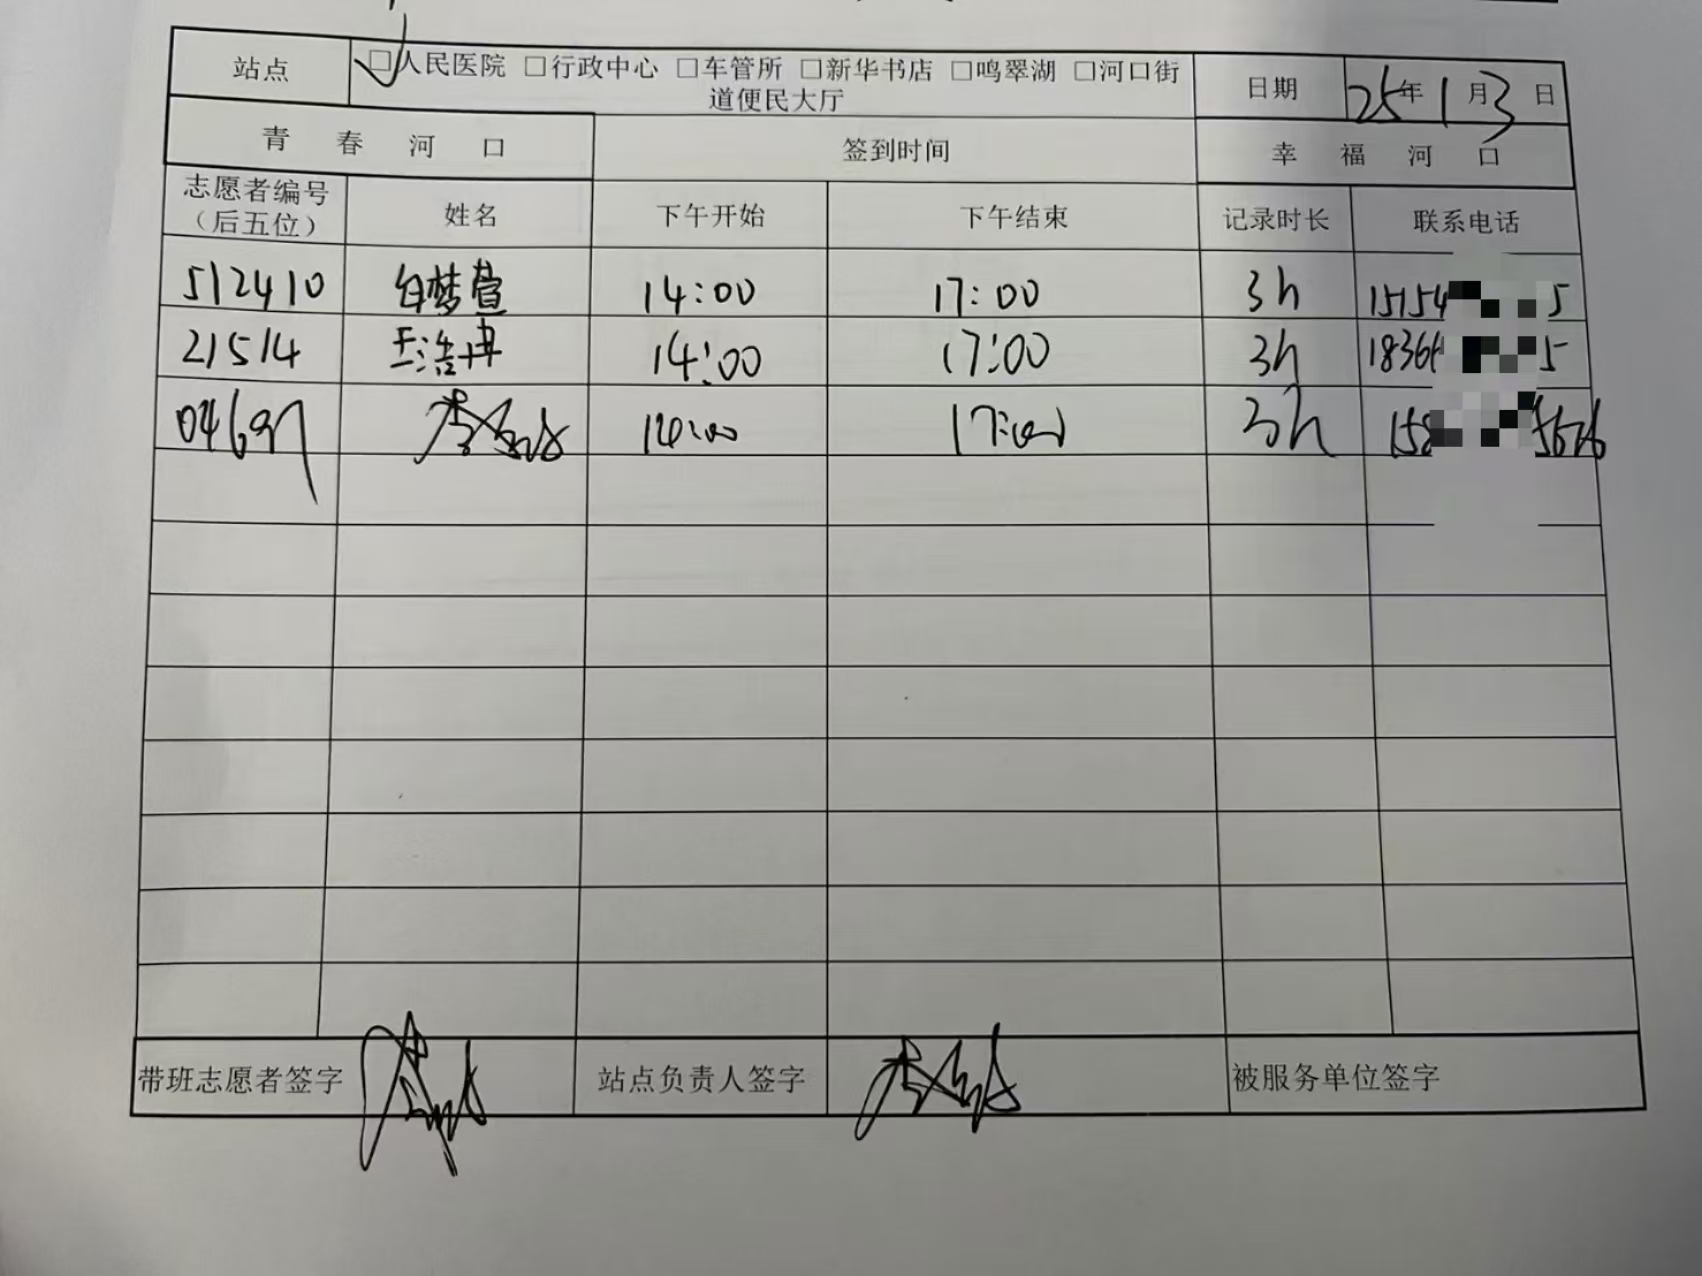 站点 □人民医院 □行政中心 □车管所 □新华书店 □鸣翠湖 □河口街道便民大厅 日期 25年1月3日
青 春 河 口 签到时间 幸 福 河 口
志愿者编号（后五位） 姓名 下午开始 下午结束 记录时长 联系电话
512410 白梦萱 14:00 17:00 3h 15154 5
21514 王浩冉 14:00 17:00 3h 1836 5
14:00 17:00 3h 158
带班志愿者签字 站点负责人签字 被服务单位签字